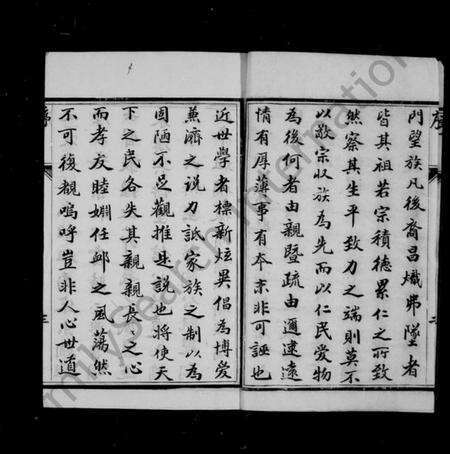 門望族凡後裔昌熾弗墜者
皆其祖若宗積德累仁之所致
然察其生平致力之端則莫不
以敬宗收族為先而以仁民愛物
為後何者由親暨疏由邇逮遠
情有厚薄事有本末非可誣也
近世學者標新炫異倡為博愛
兼濟之說力詆家族之制以為
固陋不足觀推是說也將使天
下之民各失其親親長長之心
而孝友睦婣任卹之風蕩然
不可復覩嗚呼豈非人心世道
序
二
序
三
FamilySearch International